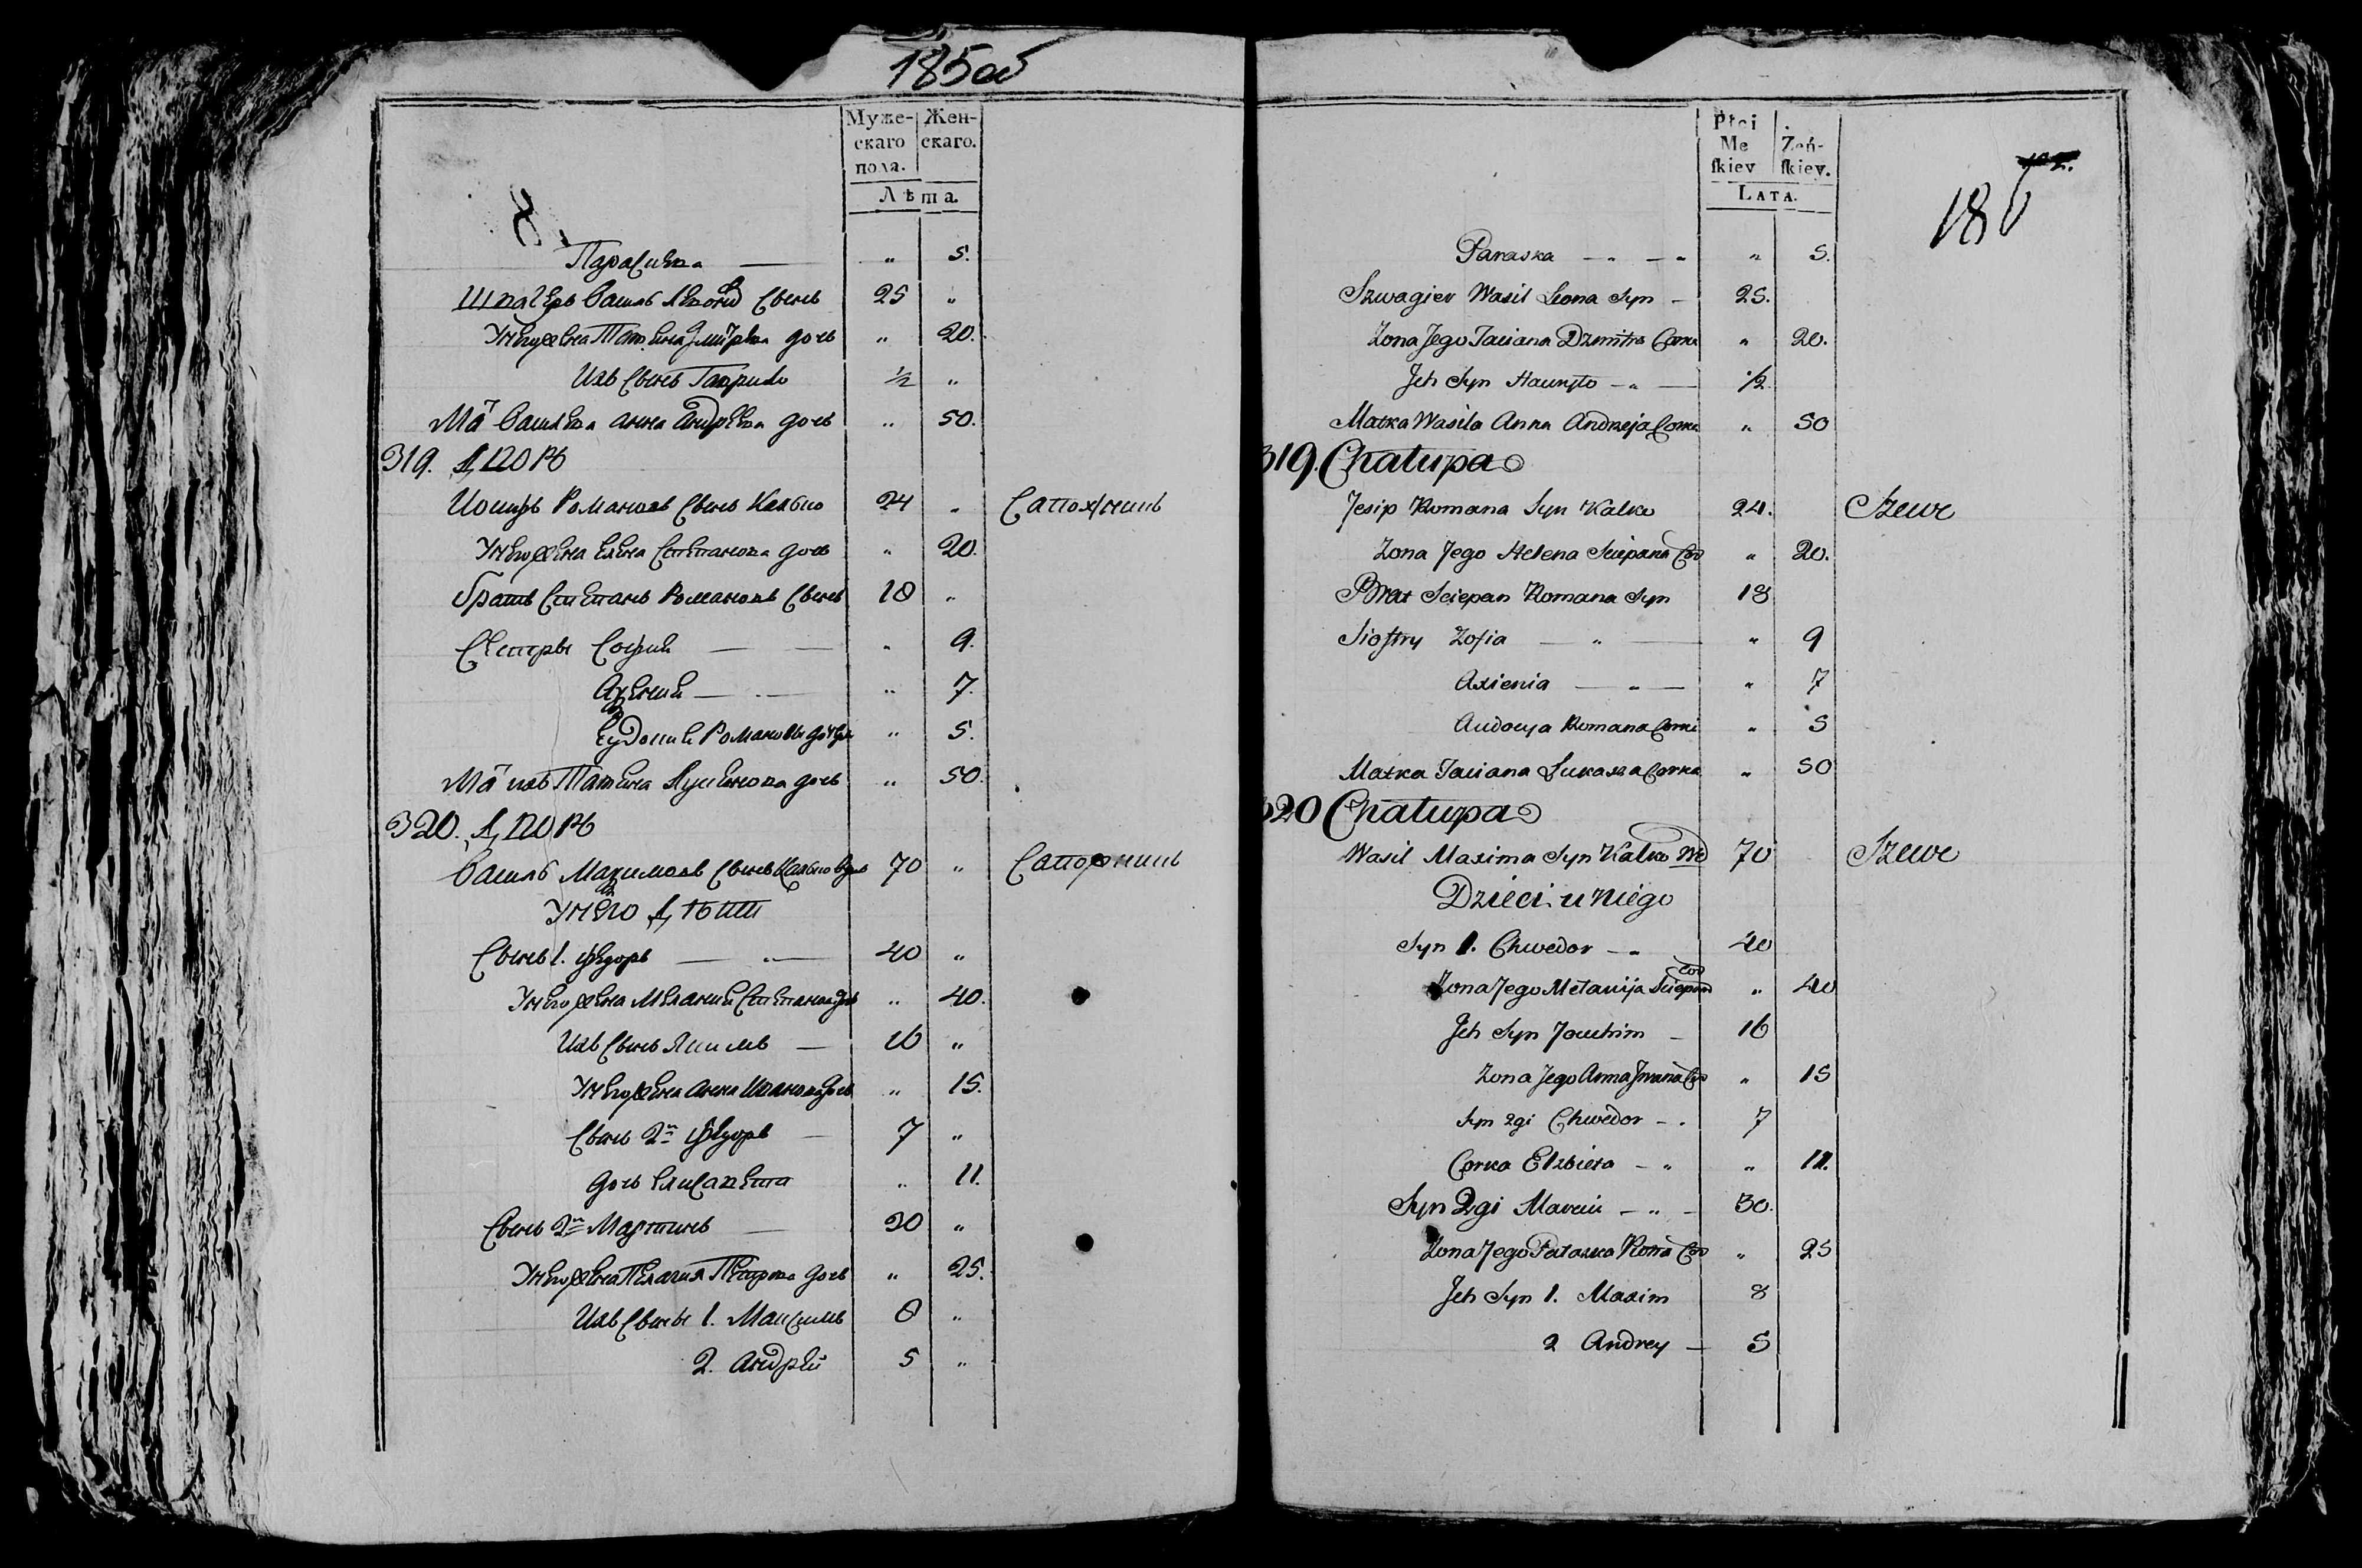 185об
Муже- Жен-
скаго скаго.
пола.
Лѣта.
8.
Парасивка — " 5.
Швагеръ Василь Леоновъ Сынъ 25 "
У него жена Татьяна Дмитрова дочь " 20.
Ихъ Сынъ Гаврило ½ "
Мать Васильева Анна Андреева дочь " 50.
319. Дворъ
Иосипъ Романовъ Сынъ Калько 24 " Сапожникъ
У него жена Елена Степанова дочь " 20.
братъ Степанъ Романовъ Сынъ 18 "
Сестры София — — " 9.
Аксения — " — " 7.
Еудокия Романовы дочери " 5.
Мать ихъ Татьяна Лукашова дочь " 50.
320. Дворъ
Василь Максимовъ Сынъ Калько 70 " Сапожникъ
У него Дѣти
Сынъ 1. Федоръ — " — 40 "
У него жена Мелания Степанова дочь " 40.
Ихъ Сынъ Якимъ — 16 "
У него жена Анна Иванова дочь " 15.
Сынъ 2й Федоръ — 7 "
дочь Елисавета " 11.
Сынъ 2й Мартинъ — 30 "
У него жена Пелагия Петрова дочь " 25.
Ихъ Сыны 1. Максимъ 8 "
2. Андрей 5 "
Płci
Me Żeń-
ſkiey ſkiey.
LATA.
186
Paraska — " — " " 5.
Szwagier Wasil Leona Syn — 25.
Zona Jego Taciana Dzmitra Corka " 20.
Jch Syn Hauryło — " — ½
Matka Wasila Anna Andrzeja Corka " 50
319. Chałupa
Jesip Romana Syn Kalko 24. Szewc
Zona Jego Helena Sciepana Cor " 20.
Brat Sciepan Romana Syn 18
Sioſtry Zofia — " — " 9
Axienia — " — " 7
Audocya Romana Corki " 5
Matka Taciana Łukasza Corka " 50
320 Chałupa
Wasil Maxima Syn Kalko Wd 70 Szewc
Dzieci u Niego
Syn 1. Chwedor — " 40
Zona Jego Metanija Sciepana Cor " 40
Jch Syn Joachim — 16
Zona Jego Anna Jwana Cor " 15
Syn 2gi Chwedor — . 7
Corka Elzbieta — " " 11.
Syn 2gi Marcin — " — 30.
Zona Jego Pałaszka Cor " 25
Jch Syn 1. Maxim 8
2 Andrey — 5